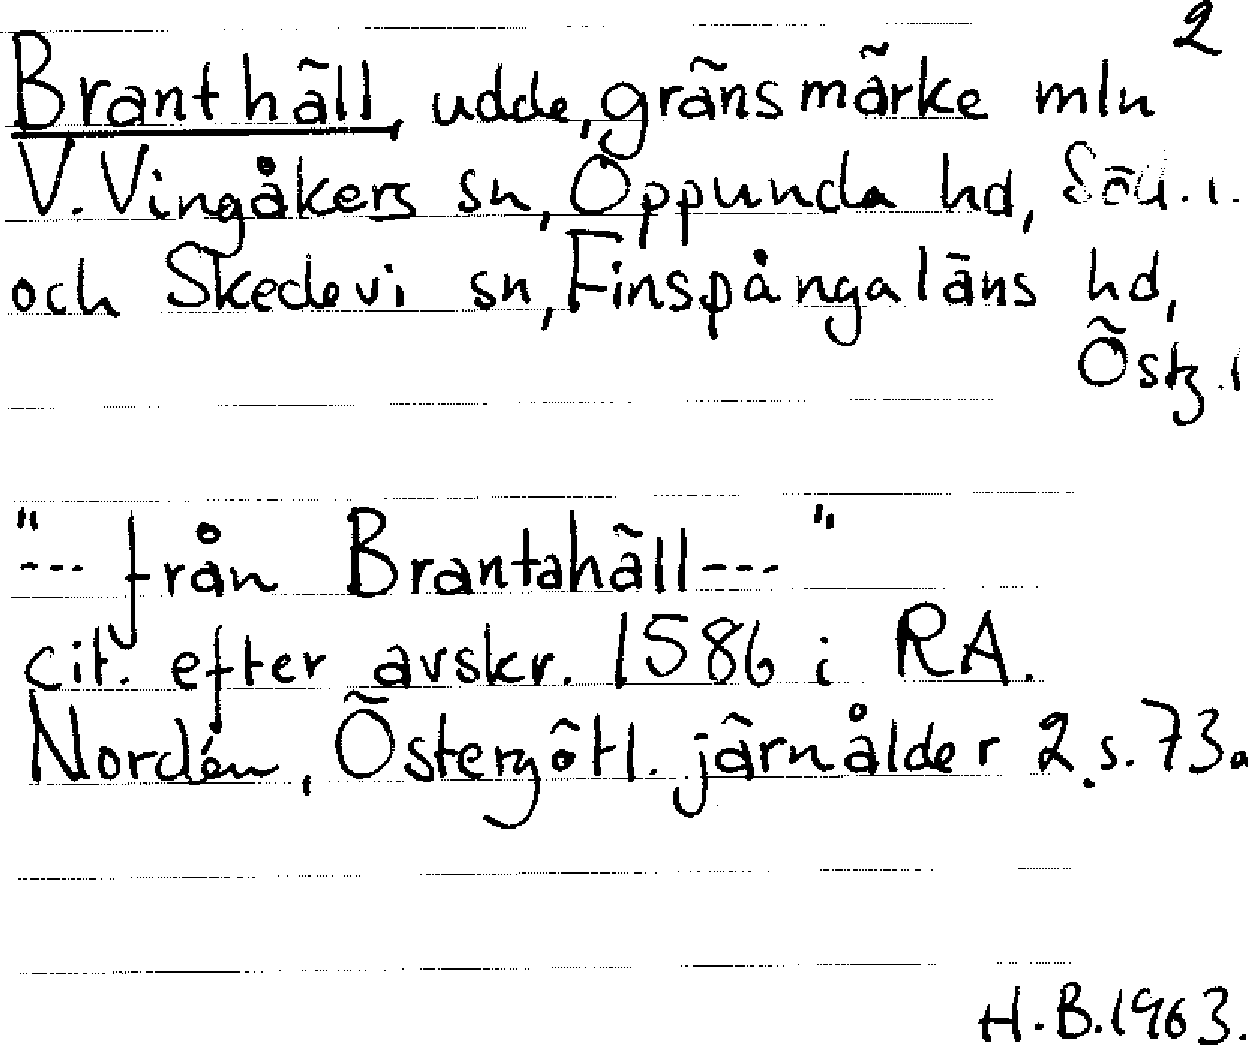 2
Branthäll, udde, gränsmärke mln
V. Vingåkers sn, Oppunda hd, Söd. l.
och Skedevi sn, Finspånga läns hd,
Östg. l
"--- från Brantahäll --- "
cit. efter avskr. 1586 i RA.
Nordén, Östergötl. järnålder 2. s. 73.
H.B. 1963.